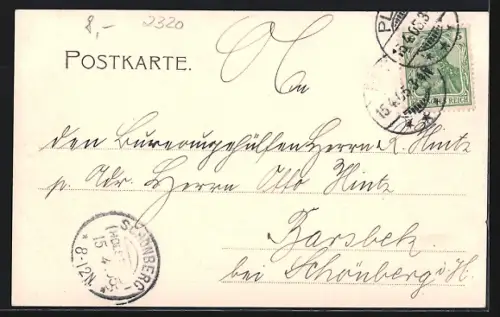 8,- 2320
POSTKARTE.
An
den Bureaugehülfen Herrn R. Hintz
p. Adr. Herrn Otto Hintz
Barsbek
bei Schönberg i/H.
SCHÖNBERG
(HOLST
15 4
8-12N
PL
15.4.05.
REICH